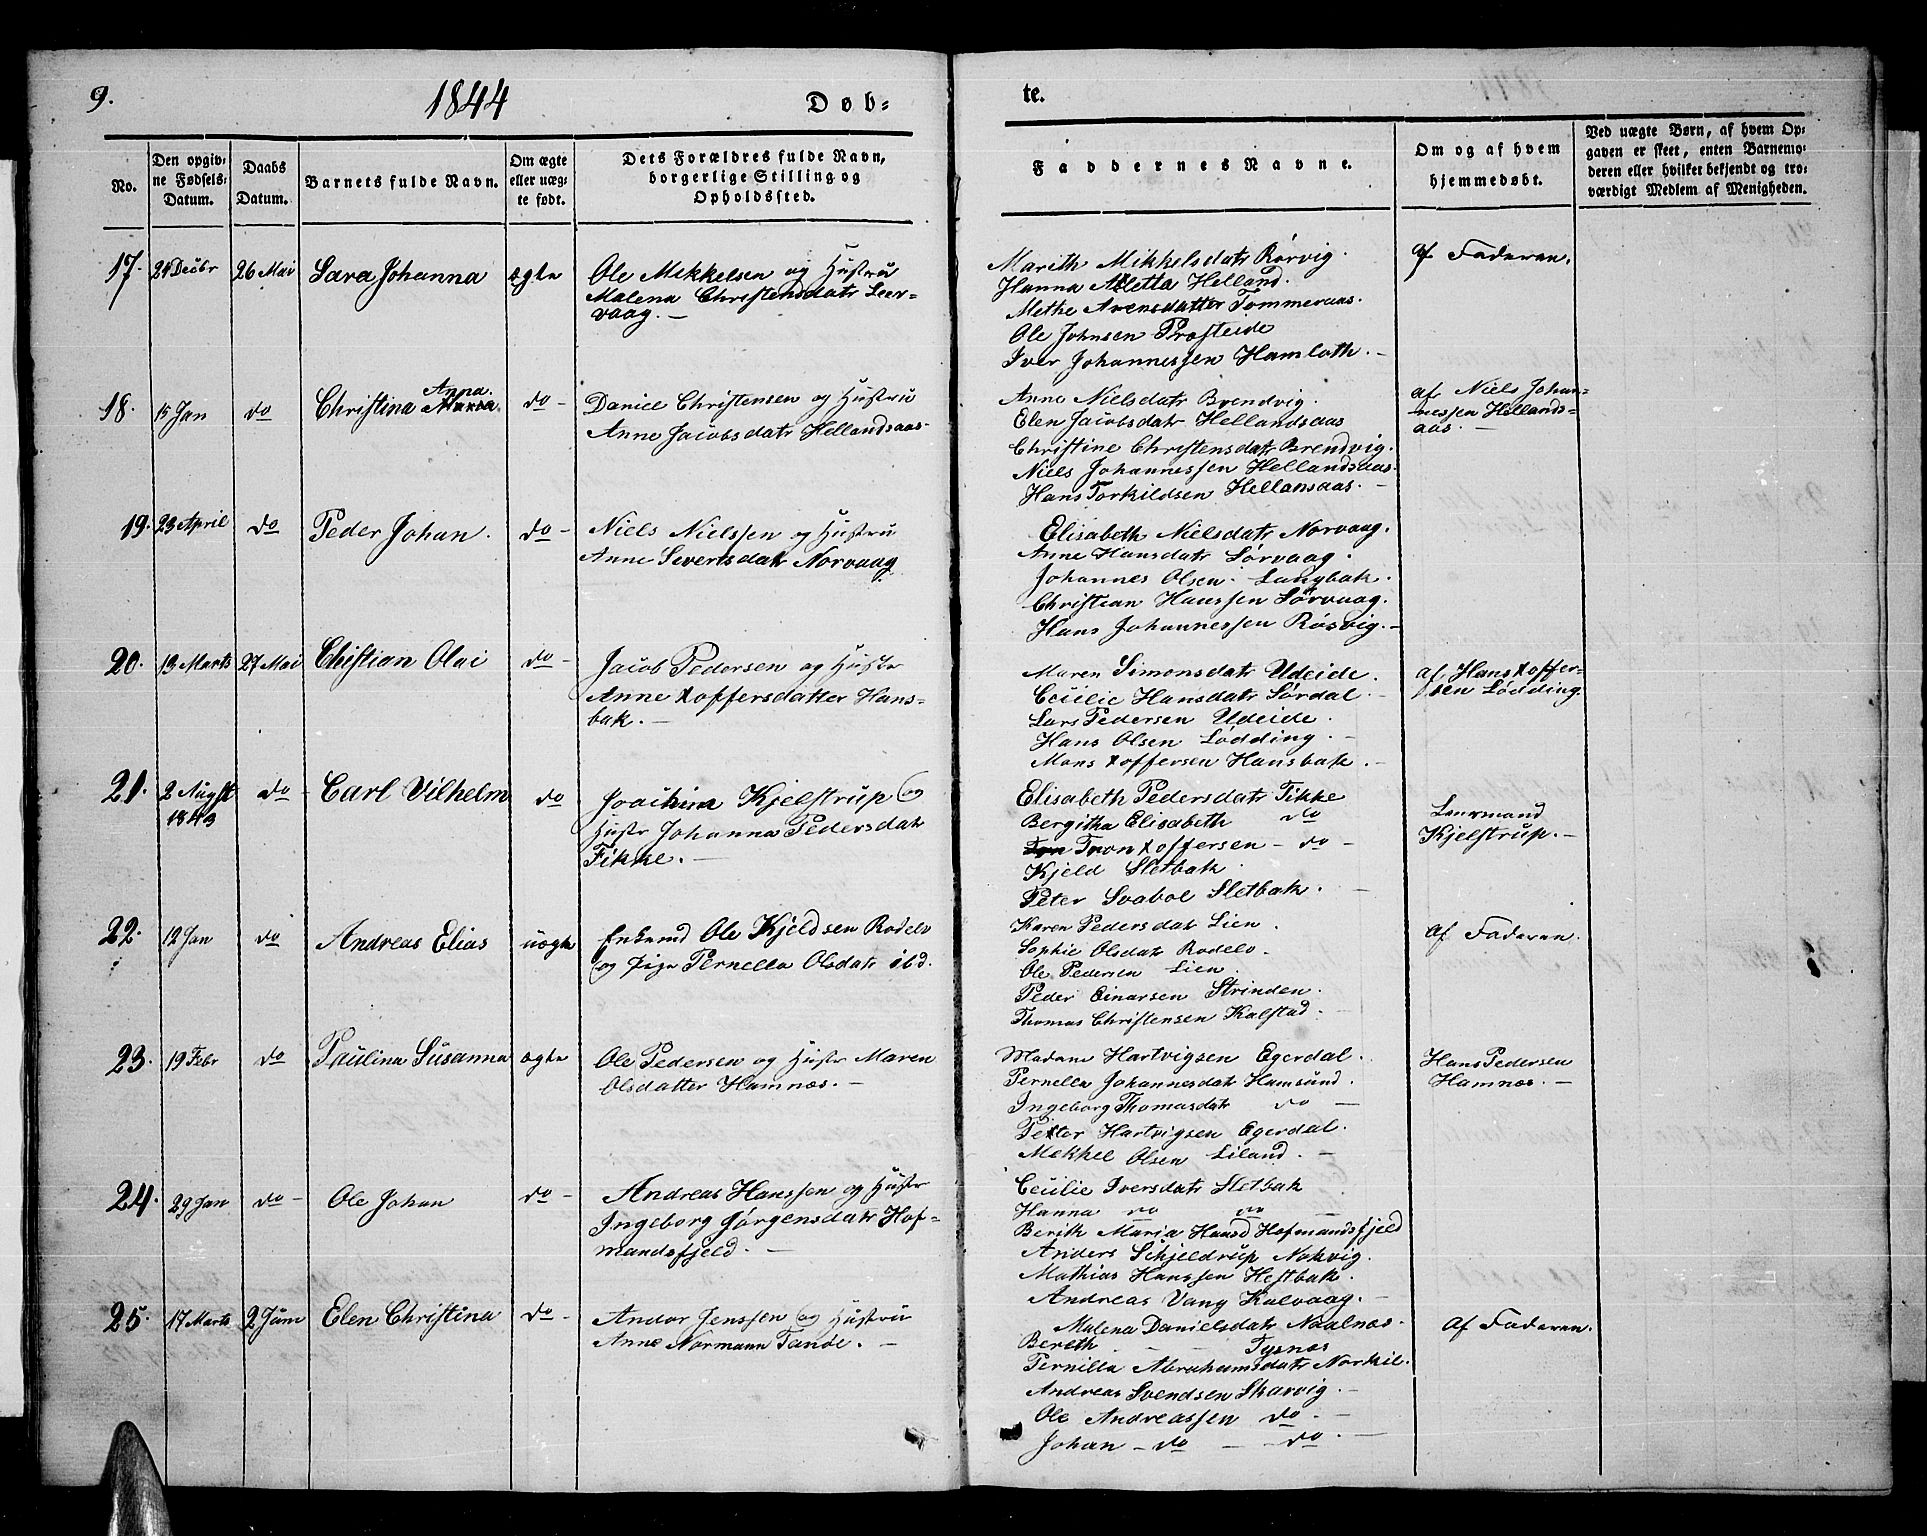 9.
1844
Døb=
te.
No.
Den opgiv=
ne Fødsels=
Datum.
Daabs
Datum.
Barnets fulde Navn.
Om ægte
eller uæg=
te født.
Dets Forældres fulde Navn,
borgerlige Stilling og
Opholdssted.
Faddernes Navne.
Om og af hvem
hjemmedøbt.
Ved uægte Børn, af hvem Op=
gaven er skeet, enten Barnemo=
deren eller hvilket bekjendt og tro=
værdigt Medlem af Menigheden.
17.
26 Mai
Sara Johanna
ægte
Ole Mikkelsen og Hustru
Malena Christensdatr Leer-
vaag. —
Marith Mikkelsdatr Rørvig.
Hanna Aletta Helland.
Methe Arensdatter Tommeraas.
Ole Johnsen Præsteide
Iver Johannessen Hamloth. —
af Faderen.
18.
15 Jan
do
Christina Anna
do -
Daniel Christensen og Hustru
Anne Jacobsdatr Hellandsaas-
Anne Nielsdatr Brendvig.
Elen Jacobsdatr Hellandsaas
Christine Christensdatr Brendvig.
Niels Johannessen Hellandsaas-
Hans Torkildsen Hellansaas. —
af Niels Johan-
nessen Hellands=
aas. —
19.
23 April
do
Peder Johan.
do -
Niels Nielssen og Hustru
Anne Sivertsdatr Norvaag
Elisabeth Nielsdatr Norvaag.
Anne Hansdatr Sørvaag.
Johannes Olsen. Langbak.
Christian Hanssen Sørvaag.
Hans Johannessen Røsvig. —
20.
13 Marts
27 Mai
Chistian Olai
do -
Jacob Pedersen og Hustr
Anne Xoffersdatter Hans=
bak. —
Maren Simonsdatr Udeide.
Cecilie Hansdatr Sørdal. —
Lars Pedersen Udeide.
Hans Olsen Lødding. —
Mons Xoffersen Hansbak. —
af Hans Xoffer-
sen Lødding.
21.
2 Augst
1843
do -
Carl Vilhelm
do
Joachim Kjelstrup og
Hustr Johanna Pedersdatr
Fikke. —
Elisabeth Pedersdatr Fikke
Bergitha Elisabeth do
Tron Xoffersen - do -
Kjeld Sletbak.
Peter Svabol Sletbak. —
Lensmand
Kjelstrup. —
22.
12 Jan
do
Andreas Elias
uægte
Enkemd Ole Kjeldsen Rodelv
og Pige Pernella Olsdatr ibd.
Karen Pedersdatr Lien.
Sophie Olsdatr Rodelv.
Ole Pedersen Lien.
Peder Einarsen Strinden.
Thomas Christensen Kalstad. —
Af Faderen.
23.
19 Febr
do
Paulina Susanna
ægte
Ole Pedersen og Hustr Maren
Olsdatter Hamnæs. —
Madam Hartvigsen Egerdal.
Pernella Johannesdatr Hamsund.
Ingeborg Thomasdatr do —
Petter Hartvigsen Egerdal.
Mikkel Olsen Liland. —
Hans Pedersen
Hamnæs. —
24.
29 Jan
do -
Ole Johan
do -
Andreas Hanssen og Hustr
Ingeborg Jørgensdatr Hof=
mandsfjeld. —
Cecilie Iversdatr Sletbak
Hanna do do —
Berik Maria Hansd Hofmandsfjeld
Anders Schjeldrup Nakvig.
Mathias Hanssen Hestbak.
Andreas Vang Kalvaag. —
25.
17 Marts
2 Juni
Elen Christina
do -
Andor Jenssen og Hustru
Anne Normann Tanøe. —
Malena Danielsdatr Naalnæs.
Bereth - - Tysnæs
Pernilla Abrahamsdatr Norkil.
Andreas Svendsen Skarvig. —
Ole Andreassen do. —
Johan - do - do. —
Af Faderen.